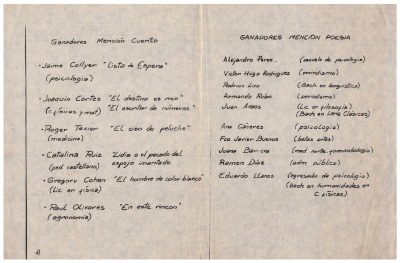 Ganadores Mención Cuento
· Jaime Collyer "Lista de Espera"
(psicología)
· Joaquín Cortés "El destino es muo"
(c. físicas y mat) "El escritor de números"
· Roger Texier "El oso de peluche"
(medicina)
· Catalina Ruiz "Lidia o el pecado del
(ped. castellano) espejo inventado
· Gregory Cohen "El hombre de color blanco"
(Lic en física)
· Raúl Olivares "En este rincón"
(agronomía)
41
GANADORES MENCION POESIA
Alejandro Pérez (escuela de psicología)
Víctor Hugo Rodríguez (periodismo)
Rodrigo Lira (Bach en lingüística)
Armando Rubio (periodismo)
Juan (Lic en filosofía)
(Bach en Leng Clásicas)
Ana Cáceres (psicología)
Fco Javier Buenos (bellas artes)
Juana (med. norte. fonoaudiología)
Ramón Díaz (adm pública)
Eduardo Llanos (egresado de psicología)
(bach en humanidades en
C. físicas)